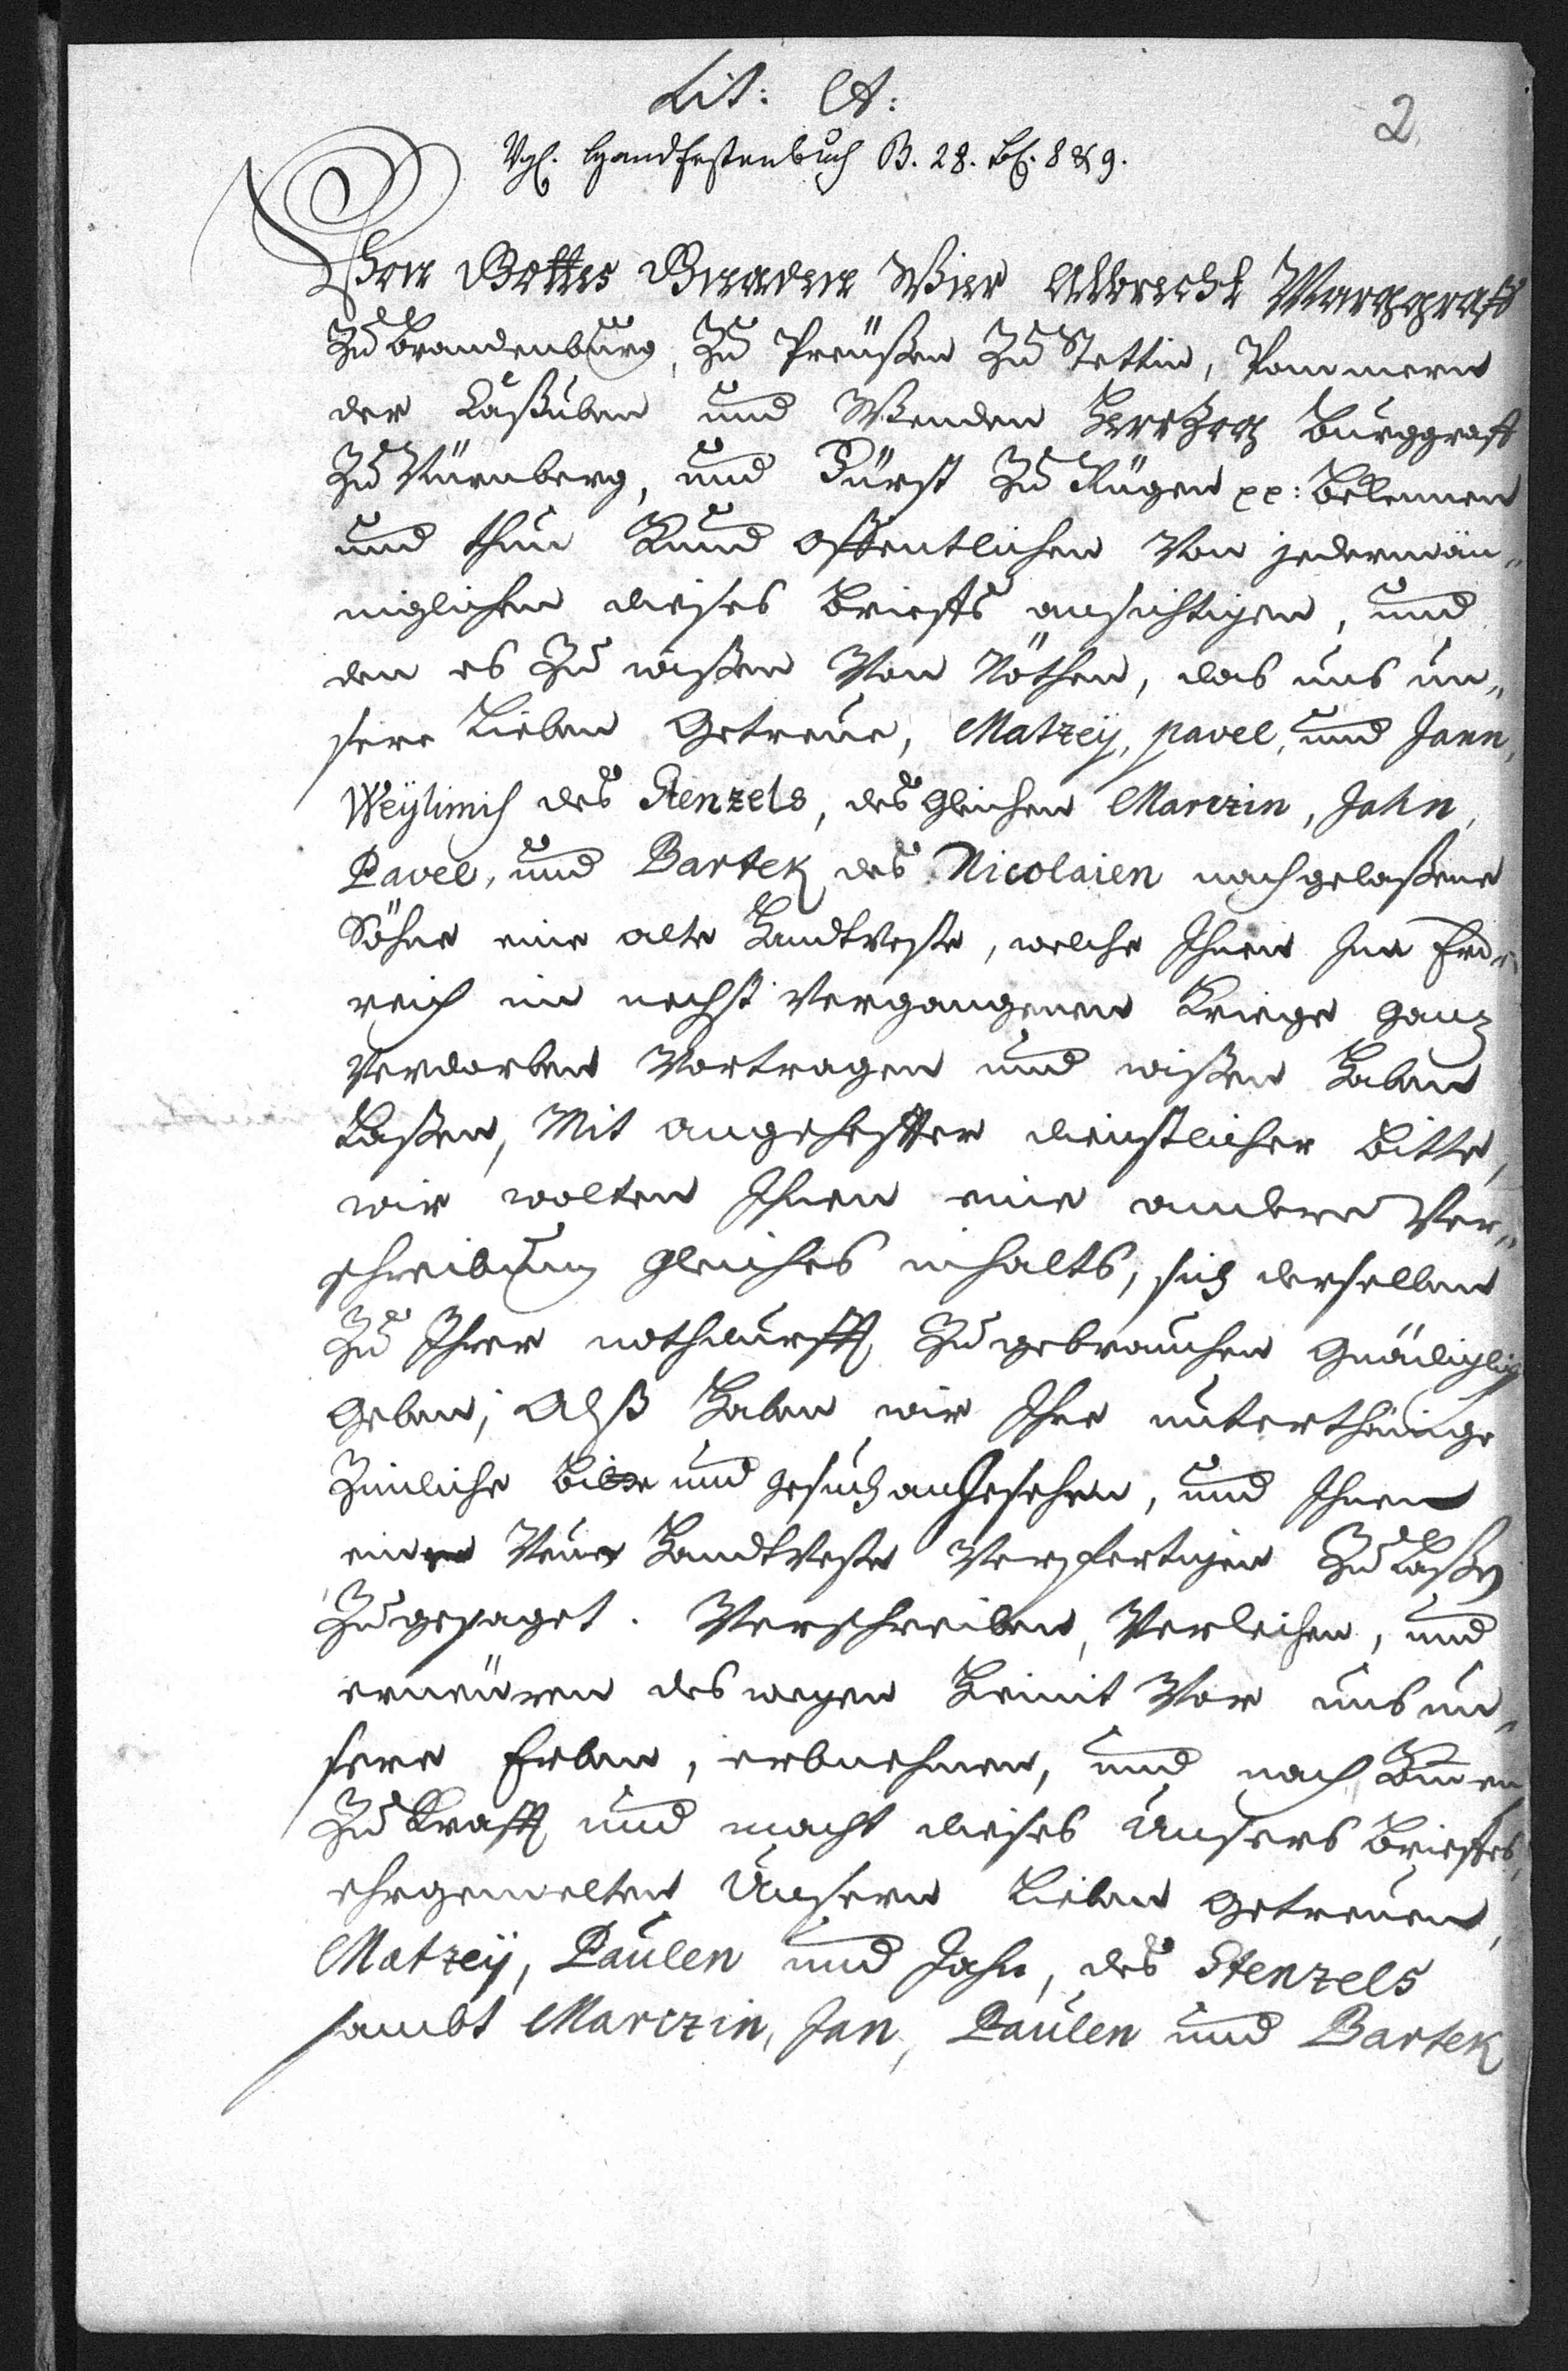 Lit: A:
2
Vgl. Handfestenbuch B. 28. Bl. 8 & 9.
Von Gottes Gnaden Wier Albrecht Marggraff
Zu Brandenburg, Zu Preüßen Zu Stettin, Pommern
der Caßuben und Wenden Hertzog Burggraff
Zu Nürnberg, und Fürst Zu Rügen pp: Bekennen
und thun Kund offentlichen Von jedermän„
niglichen dieses Brieffs ansichtigen, und
den es Zu wißen Von Nöthen, das uns un„
sere Lieben Getreue, Matzeÿ, pavel, und Jann,
des Stenzels, des Gleichen Marczin, Jahn,
Pavel, und Bartek des Nicolaien nachgelaßene
Söhne eine alte Handtveste, welche Ihnen Inn Erd„
reich im nechst Vergangenen Kriege Ganz
Verdorben Vortragen und wißen Haben
Laßen, Mit angehefter dienstlicher Bitte,
wir wolten Ihnen eine andere Ver„
schreibung Gleiches inhalts, sich derselben
Zu Ihrer nothdurfft Zu gebrauchen Gnädiglich
Geben; Alß Haben wir Ihre unterthänige
Zimliche Bitte und Gesuch anGesehen, und Ihnen
eine Neue Handtveste Verfertigen Zu Laßen
Zugesaget. Verschreiben, Verleihen, und
erneüren deswegen Hiemit Vor uns un„
sere Erben, erbnehmen, und nach Kommen
Zu Krafft und macht dieses Unsers Brieffes,
ehrgemelten Unsern Lieben Getreuen,
Matzeÿ, Paulen und Jahn, des Stenzels
sambt Marczin, Jan, Paulen und Bartek